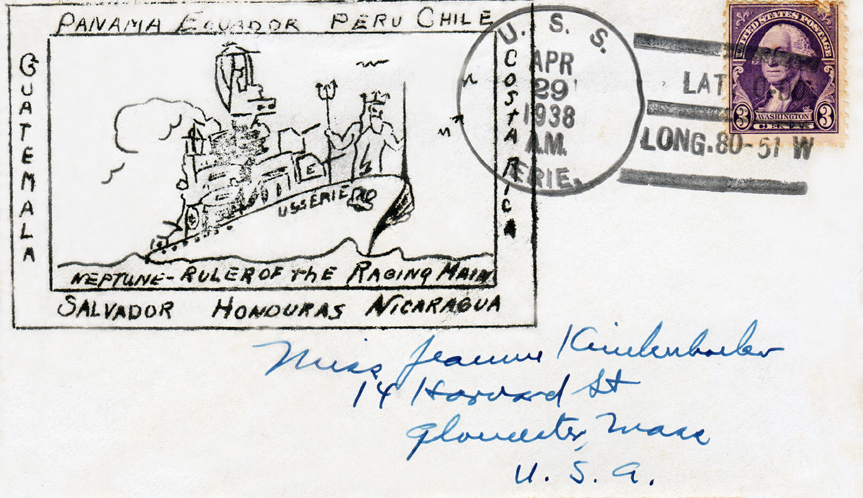 PANAMA ECUADOR PERU CHILE
GUATEMALA
COSTA RICA
USS ERIE
NEPTUNE-RULER OF the RAGING MAIN
SALVADOR HONDURAS NICARAGUA
U. S. S.
APR
29
1938
A.M.
ERIE.
LAT
LONG. 80-51 W
UNITED STATES POSTAGE
3 WASHINGTON 3
Miss Jeanne
14 Harvard St
Gloucester, Mass
U. S. A.